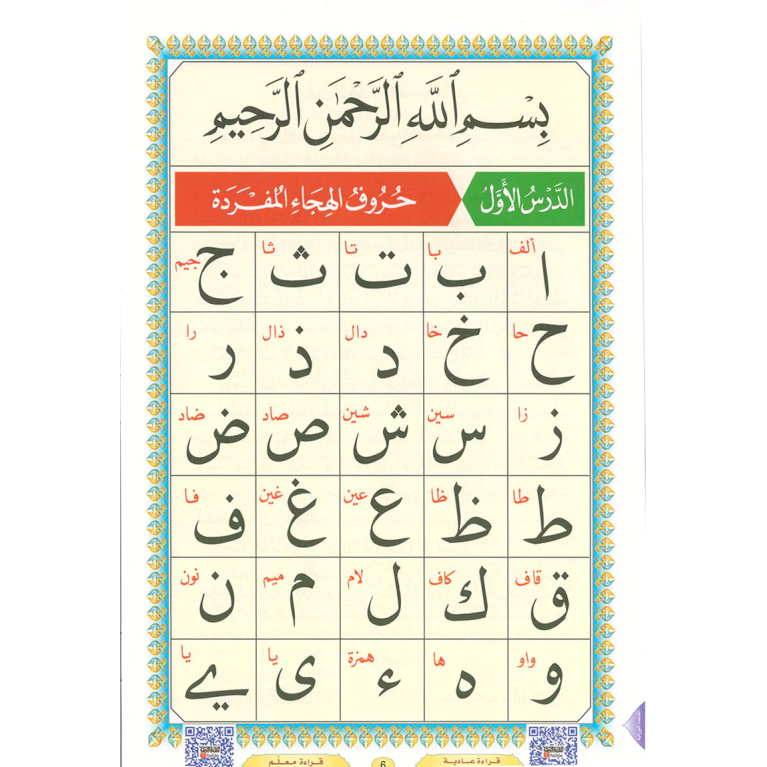 بِسْمِ ٱللَّهِ ٱلرَّحْمَٰنِ ٱلرَّحِيمِ
الدَّرْسُ الأَوَّلُ حُرُوفُ الهِجَاءِ المُفْرَدَةِ
ألف با تا ثا جيم
ا ب ت ث ج
حا خا دال ذال را
ح خ د ذ ر
زا سين شين صاد ضاد
ز س ش ص ض
طا ظا عين غين فا
ط ظ ع غ ف
قاف كاف لام ميم نون
ق ك ل م ن
واو ها همزة يا يا
و ه ء ى ے
قراءة عادية 6 قراءة معلّم